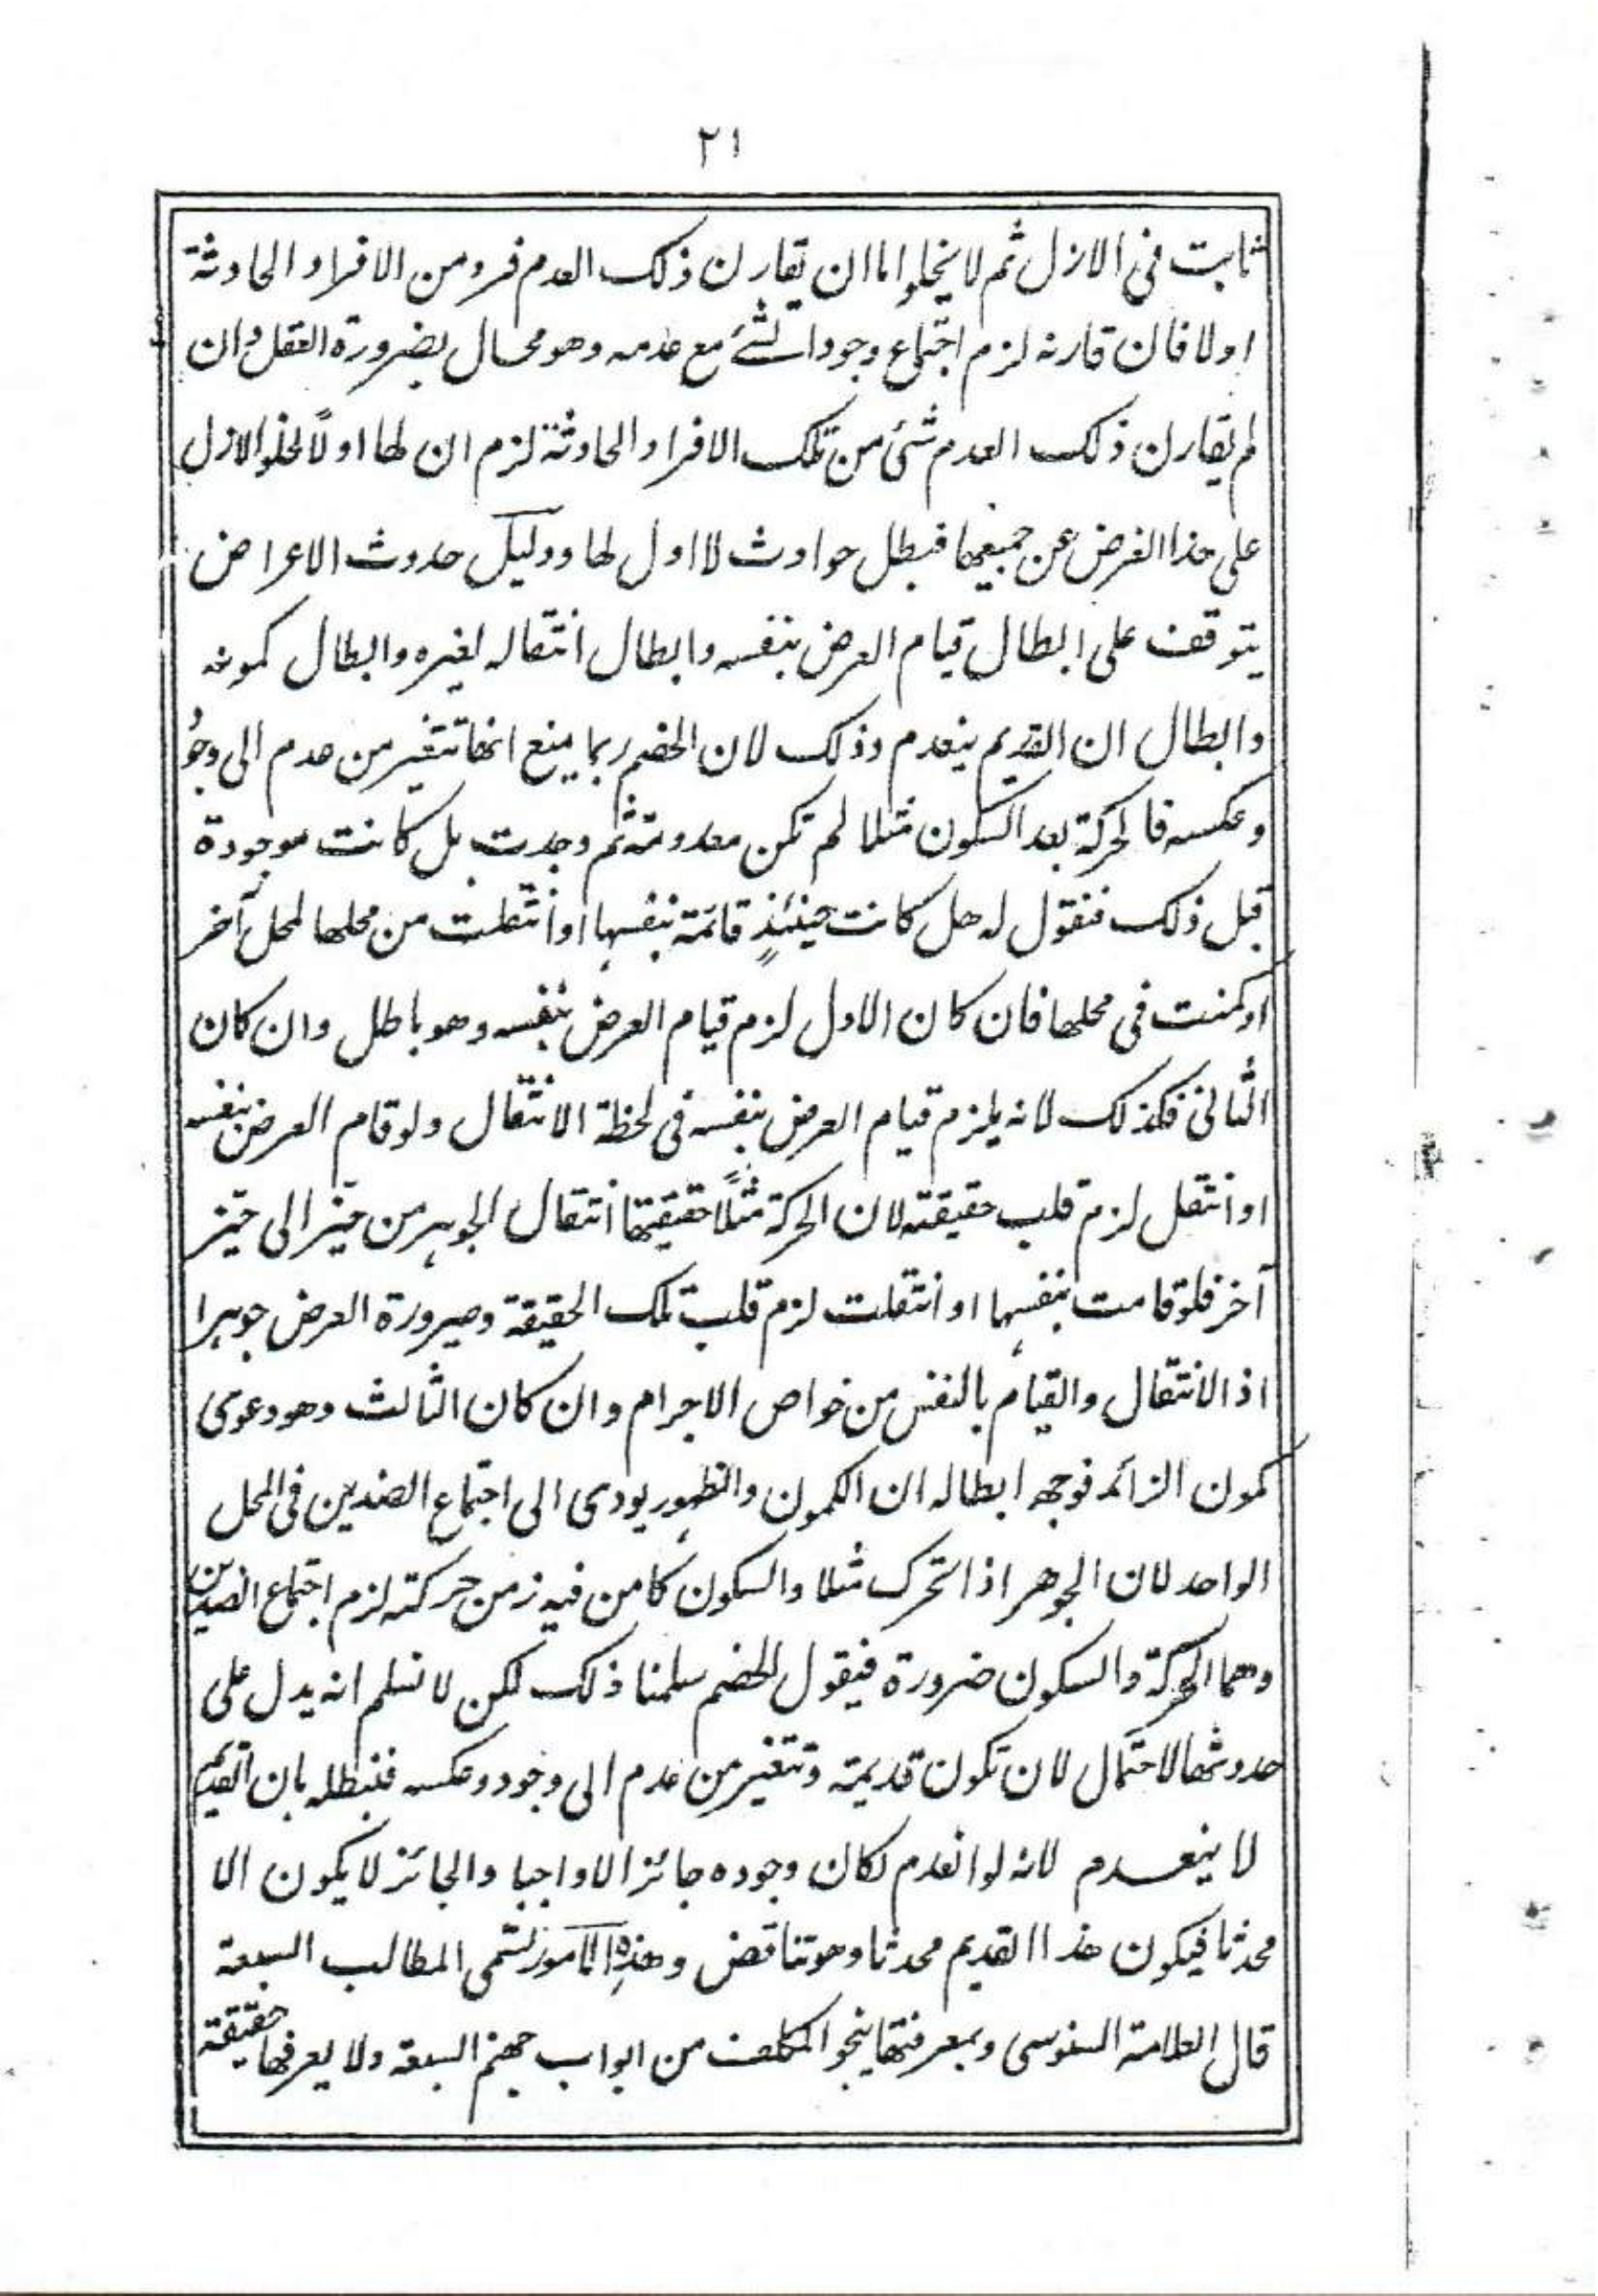 ٢١
ثابت فى الازل ثم لا يخلوا اما ان يقارن ذلك العدم فرد من الافراد الحادثة
اولا فان قارنه لزم اجتماع وجود الشئ مع عدمه وهو محال بضرورة العقل وان
لم يقارن ذلك العدم شئ من تلك الافراد الحادثة لزم ان لها اولاً لخلو الازل
على هذا الفرض عن جميعها فبطل حوادث لا اول لها ودليل حدوث الاعراض
يتوقف على ابطال قيام العرض بنفسه وابطال انتقاله لغيره وابطال كمونه
وابطال ان القديم ينعدم وذلك لان الخصم ربما يمنع انها تتغير من عدم الى وجُو
وعكسه فالحركة بعد السكون مثلا لم تكن معدومة ثم وجدت بل كانت موجودة
قبل ذلك فنقول له هل كانت حينئذٍ قائمة بنفسها او انتقلت من محلها لمحل آخر
او كمنت فى محلها فان كان الاول لزم قيام العرض بنفسه وهو باطل وان كان
الثانى فكذلك لانه يلزم قيام العرض بنفسه فى لحظة الانتقال ولو قام العرض بنفسه
او انتقل لزم قلب حقيقته لان الحركة مثلًا حقيقتها انتقال الجوهر من حيز الى حيز
آخر فلو قامت بنفسها او انتقلت لزم قلب تلك الحقيقة وصيرورة العرض جوهرا
اذ الانتقال والقيام بالنفس من خواص الاجرام وان كان الثالث وهو دعوى
كمون الزائد فوجه ابطاله ان الكمون والظهور يودى الى اجتماع الضدين فى المحل
الواحد لان الجوهر اذا تحرك مثلا والسكون كامن فيه زمن حركته لزم اجتماع الضدين
وهما الحركة والسكون ضرورة فيقول الخصم سلمنا ذلك لكن لا نسلم انه يدل على
حدوثها لاحتمال لان تكون قديمة وتتغير من عدم الى وجود وعكسه فنبطله بان القديم
لا ينعدم لانه لو انعدم لكان وجوده جائزا لا واجبا والجائز لا يكون الا
محدثا فيكون هذا القديم محدثا وهو تناقض وهذه الامور تسمى المطالب السبعة
قال العلامة السنوسى وبمعرفتها ينجو المكلف من ابواب جهنم السبعة ولا يعرفها حقيقة